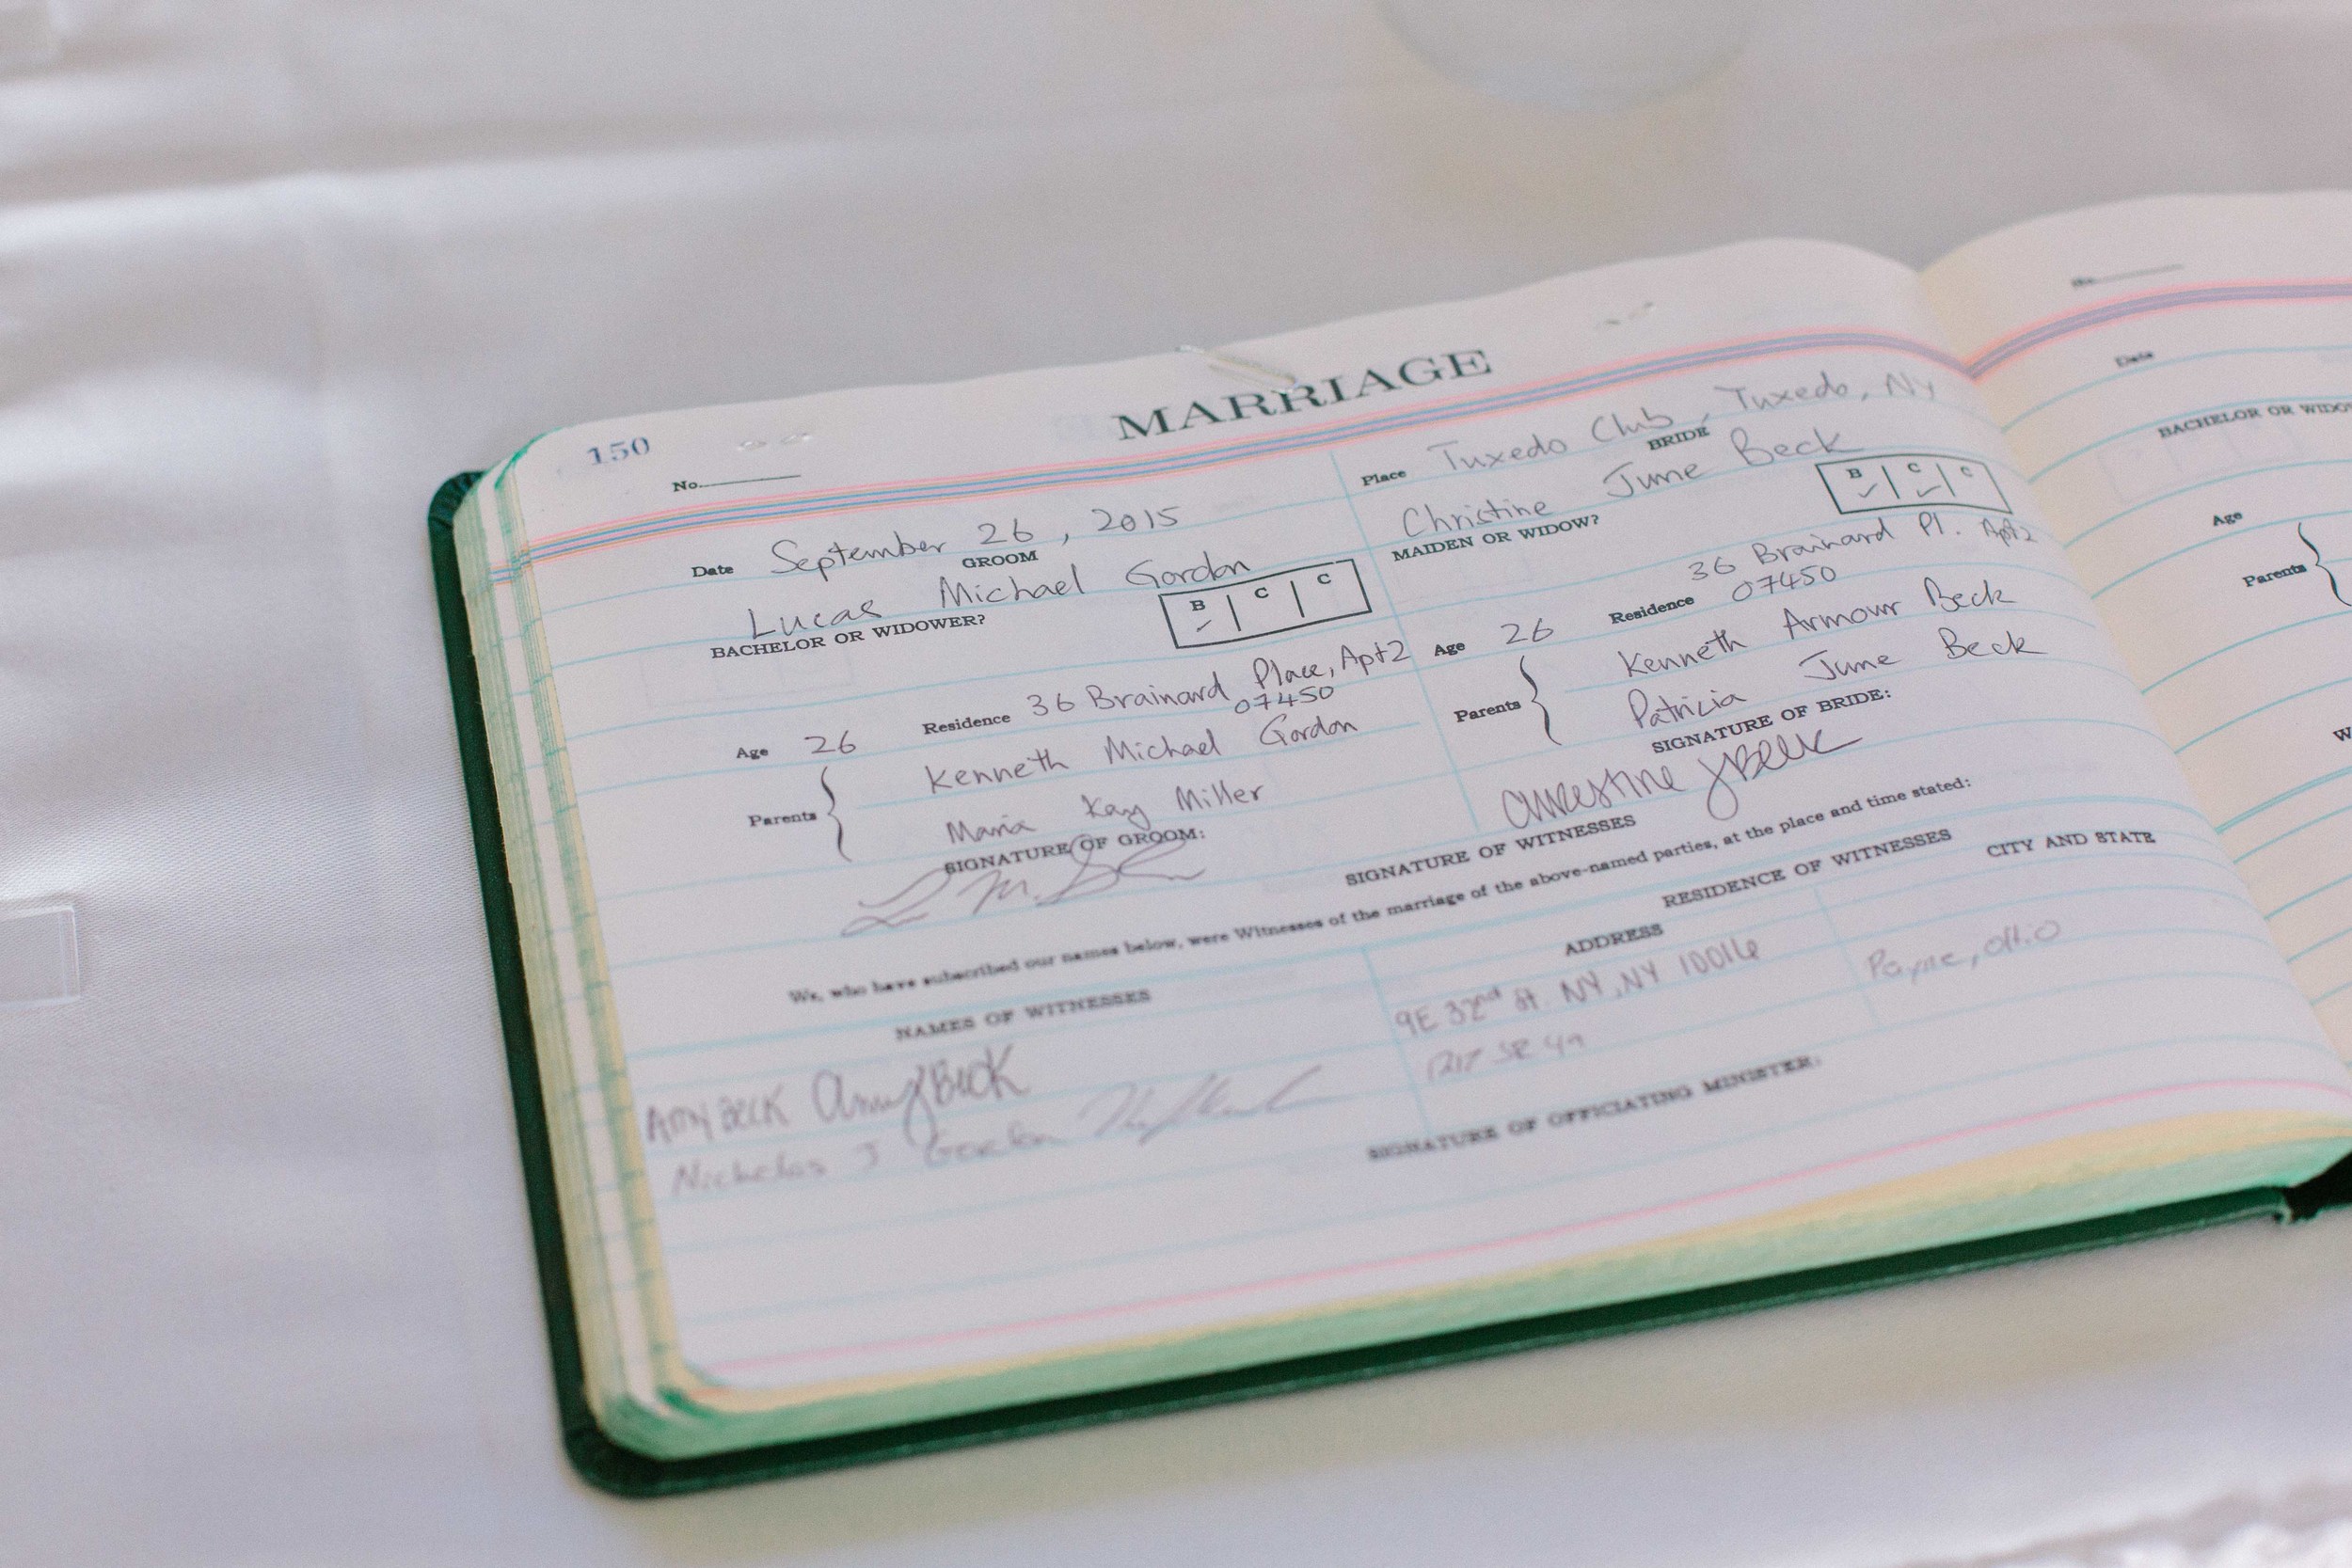 150
MARRIAGE
No.
Date September 26, 2015
GROOM
Lucas Michael Gordon
BACHELOR OR WIDOWER?
B C C
✓
Age 26 Residence 36 Brainard Place, Apt 2
07450
Parents Kenneth Michael Gordon
Maria Kay Miller
SIGNATURE OF GROOM:
Place Tuxedo Club, Tuxedo, NY
BRIDE
Christine June Beck
MAIDEN OR WIDOW?
B C C
✓ ✓
Age 26 Residence 36 Brainard Pl. Apt 2
07450
Parents Kenneth Armour Beck
Patricia June Beck
SIGNATURE OF BRIDE:
Christine J Beck
SIGNATURE OF WITNESSES
We, who have subscribed our names below, were Witnesses of the marriage of the above-named parties, at the place and time stated:
RESIDENCE OF WITNESSES
NAMES OF WITNESSES ADDRESS CITY AND STATE
AMY BECK Amy J Beck 9E 32nd St. NY, NY 10016
Nicholas J Gordon 1217 SR 49 Payne, OH.O
SIGNATURE OF OFFICIATING MINISTER:
No.
Date
BACHELOR OR
Age
Parents